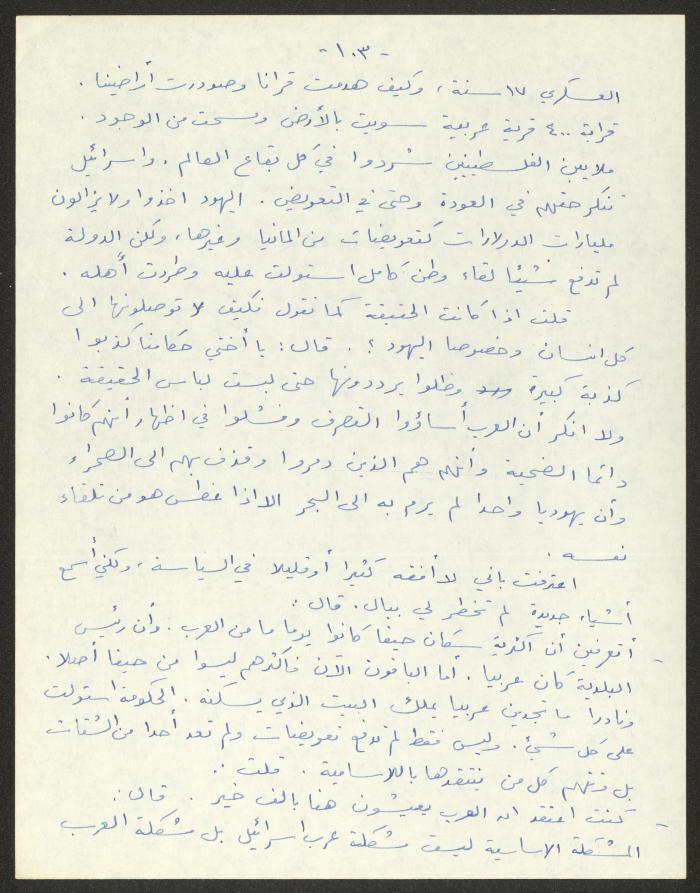 -١٠٣-
العسكري ١٧ سنة، وكيف هدمت قرانا وصودرت أراضينا.
قرابة ٤٠٠ قرية عربية سويت بالأرض ومسحت من الوجود.
ملايين الفلسطينيين شردوا في كل بقاع العالم. واسرائيل
تنكر حقهم في العودة وحتى في التعويض. اليهود اخذوا ولا يزالون
مليارات الدولارات كتعويضات من المانيا وغيرها، ولكن الدولة
لم تدفع شيئا لقاء وطن كامل استولت عليه وطردت أهله.
قلت اذا كانت الحقيقة كما تقول فكيف لا توصلونها الى
كل انسان وخصوصا اليهود؟. قال: يا أختي حكامنا كذبوا
كذبة كبيرة وظلوا يرددونها حتى لبست لباس الحقيقة.
ولا انكر أن العرب أساؤوا التصرف وفشلوا في اظهار أنهم كانوا
دائما الضحية وأنهم هم الذين دمروا وقذف بهم الى الصحراء
وأن يهوديا واحدا لم يرم به الى البحر الا اذا غطس هو من تلقاء
نفسه.
اعترفت باني لا أفقه كثيرا أو قليلا في السياسة، ولكني أسمع
أشياء جديدة لم تخطر لي ببال. قال:
- أتعرفين أن أكثرية سكان حيفا كانوا يوما ما من العرب. وأن رئيس
البلدية كان عربيا. أما الباقون الآن فأكثرهم ليسوا من حيفا أصلا.
ونادرا ما تجدين عربيا يملك البيت الذي يسكنه. الحكومة استولت
على كل شيء. وليس فقط لم تدفع تعويضات ولم تعد أحدا من الشتات
بل وتتهم كل من ينتقدها باللاسامية. قلت:
- كنت اعتقد ان العرب يعيشون هنا بالف خير. قال:
المشكلة الاساسية ليست مشكلة عرب اسرائيل بل مشكلة العرب